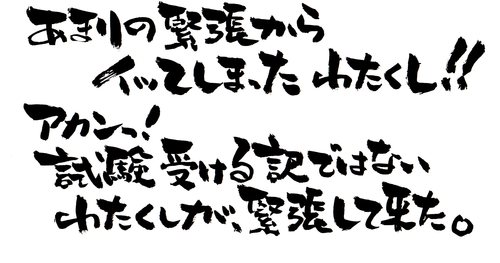 あまりの緊張から
イッてしまった わたくし!!
アカンっ!
試験受ける訳ではない
わたくしが、緊張して来た。